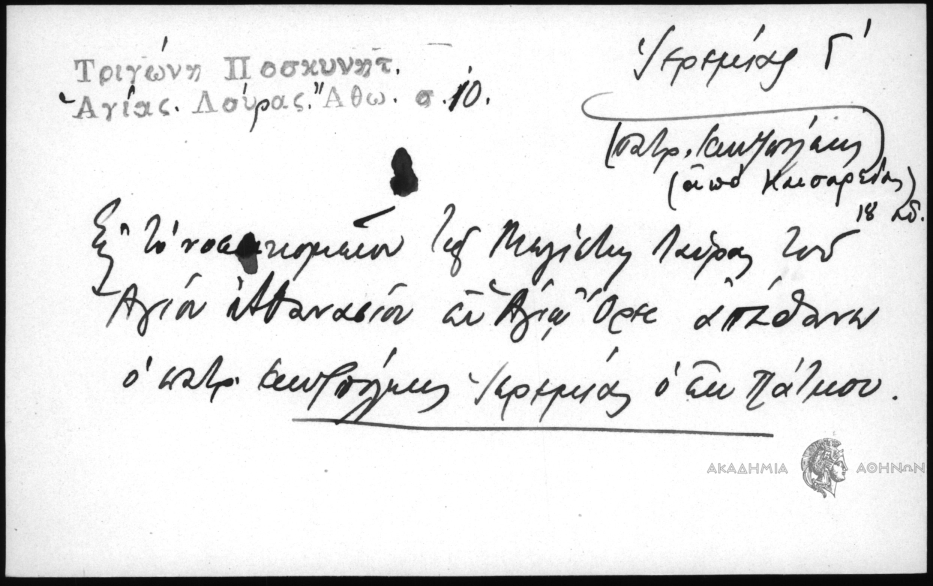 Τριγώνη Ποσκυνητ.
Ἁγίας. Λαύρας. Ἄθω. σ. 10.
Ἱερεμίας Γ΄
(πατρ. Κων/πόλεως)
(ἀπὸ Καισαρείας)
18 αἰ.
Ἐν τῷ νοσοκομείῳ τῆς Μεγίστης Λαύρας τοῦ
Ἁγίου Ἀθανασίου ἐν Ἁγίῳ Ὄρει ἀπέθανεν
ὁ πατρ. Κων/πόλεως Ἱερεμίας ὁ ἐκ Πάτμου.
ΑΚΑΔΗΜΙΑ ΑΘΗΝΩΝ